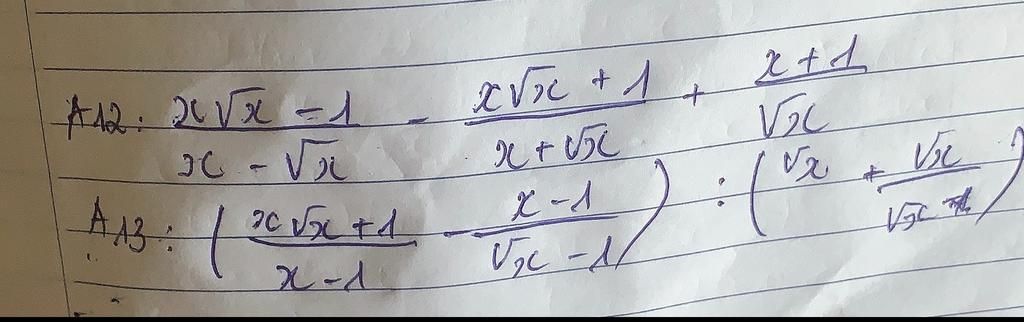 A12: (x√x - 1)/(x - √x) - (x√x + 1)/(x + √x) + (x + 1)/√x
A13: ( (x√x + 1)/(x - 1) - (x - 1)/(√x - 1) ) : ( √x + √x/(√x